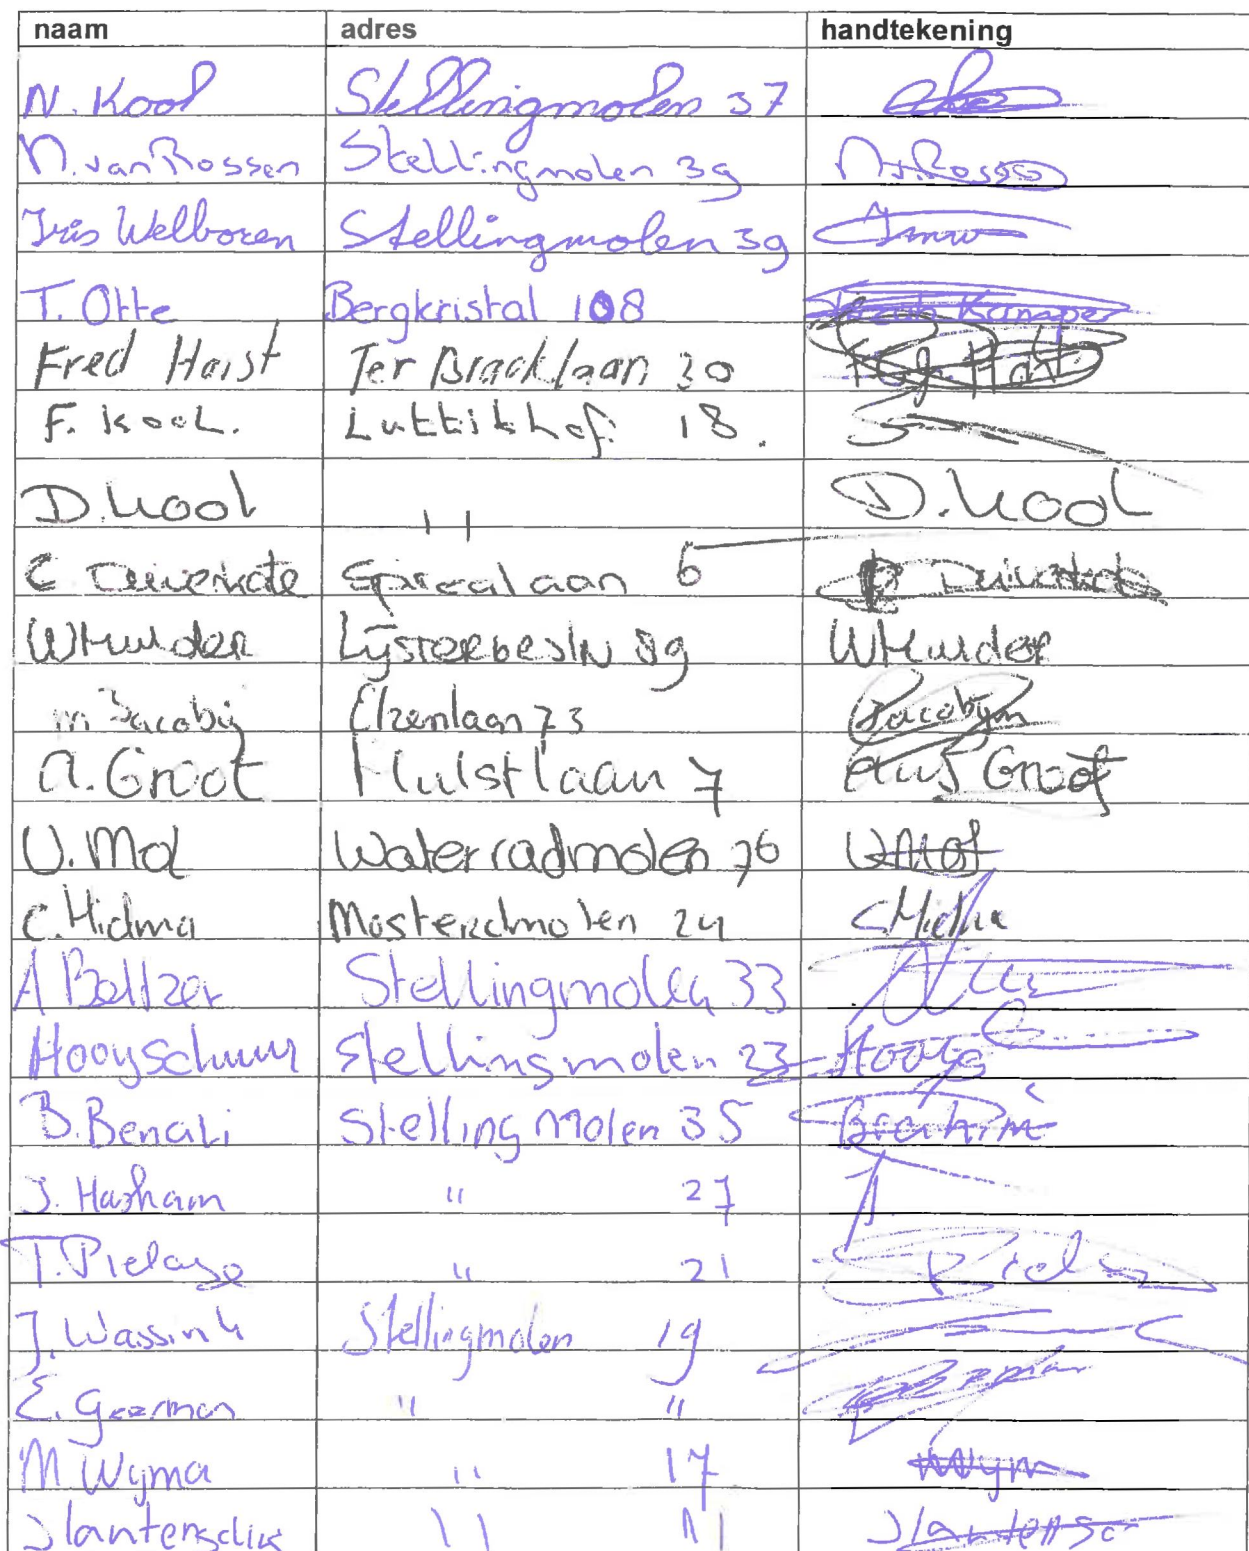 naam adres handtekening
N. Kool Stellingmolen 37
N. van Rossen Stellingmolen 39 N.v.Rossen
Iris Welboren Stellingmolen 39
T. Otte Bergkristal 108 Kamper
Fred Horst Ter Bracklaan 30
F. Kool. Luttikhof 18.
D. Kool '' D. Kool
C laan 6
WMulder Lijsterbesln 89 WMulder
M Jacobij Elzenlaan 73 Jacobij m
A. Groot Hulstlaan 7 Groot
U. Mol Waterradmolen 76 UMol
C. Hidma Mosterdmolen 24
A Beltzer Stellingmolen 33
Hooyschuur Stellingmolen 23 Hooys
B. Benali Stelling Molen 35 Brahim
J. Hasham '' 27
T. Pielage '' 21 Piela
J. Wassink Stellingmolen 19
E. Geerman '' ''
M Wyma '' 17 Wym
J lantersclik '' 11